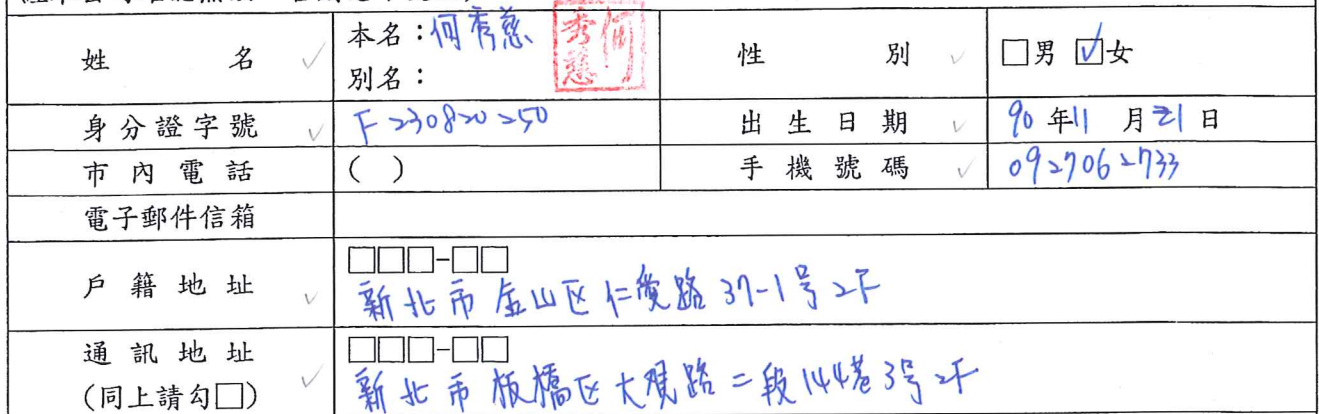 姓名 本名：何秀慈 何秀慈 性別 □男 ☑女
別名：
身分證字號 F230820250 出生日期 90年11月21日
市內電話 ( ) 手機號碼 0927062733
電子郵件信箱
戶籍地址 □□□-□□
新北市金山区仁愛路37-1号2F
通訊地址 □□□-□□
(同上請勾□) 新北市板橋区大觀路二段144巷3号2F